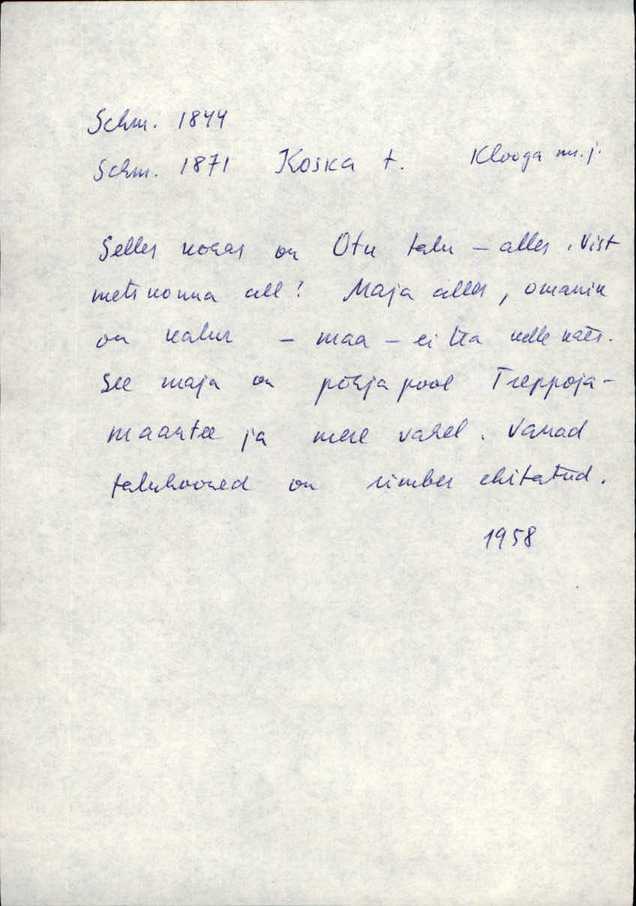 Schm. 1844
Schm. 1871 Koska t. Klooga m.j.
Selles kohas on Otu talu – alles. Vist
metskonna all! Maja alles, omanik
on kalur – maa – ei tea kelle käes.
See maja on põhja pool Treppoja-
maantee ja mere vahel. Vanad
taluhooned on ümber ehitatud.
1958